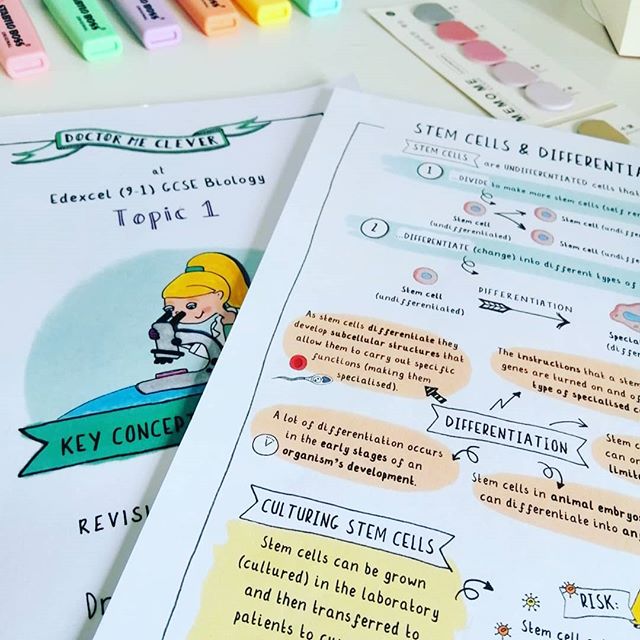 BOSS
STABILO
BOSS
BOSS
MEMOME
DOCTOR ME CLEVER
at
Edexcel (9-1) GCSE Biology
Topic 1
KEY
REVISI
STEM CELLS & DIFFERENTIA
STEM CELLS are UNDIFFERENTIATED cells tha
1 ...DIVIDE to make more stem cells (self re
Stem cell
(undifferentiated)
Stem cell (undiffe
Stem cell (undiff
2 ...DIFFERENTIATE (change) into different types of
DIFFERENTIATION
Stem cell
(undifferentiated)
Special
(diffe
As stem cells differentiate they
develop subcellular structures that
allow them to carry out specific
functions (making them
specialised).
The instructions that a stem
genes are turned on and of
type of specialised c
A lot of differentiation occurs
in the early stages of an
organism's development.
DIFFERENTIATION
Stem c
can or
limite
Stem cells in animal embryos
can differentiate into an
CULTURING STEM CELLS
Stem cells can be grown
(cultured) in the laboratory
and then transferred to
patients to cu
RISK:
Stem cells